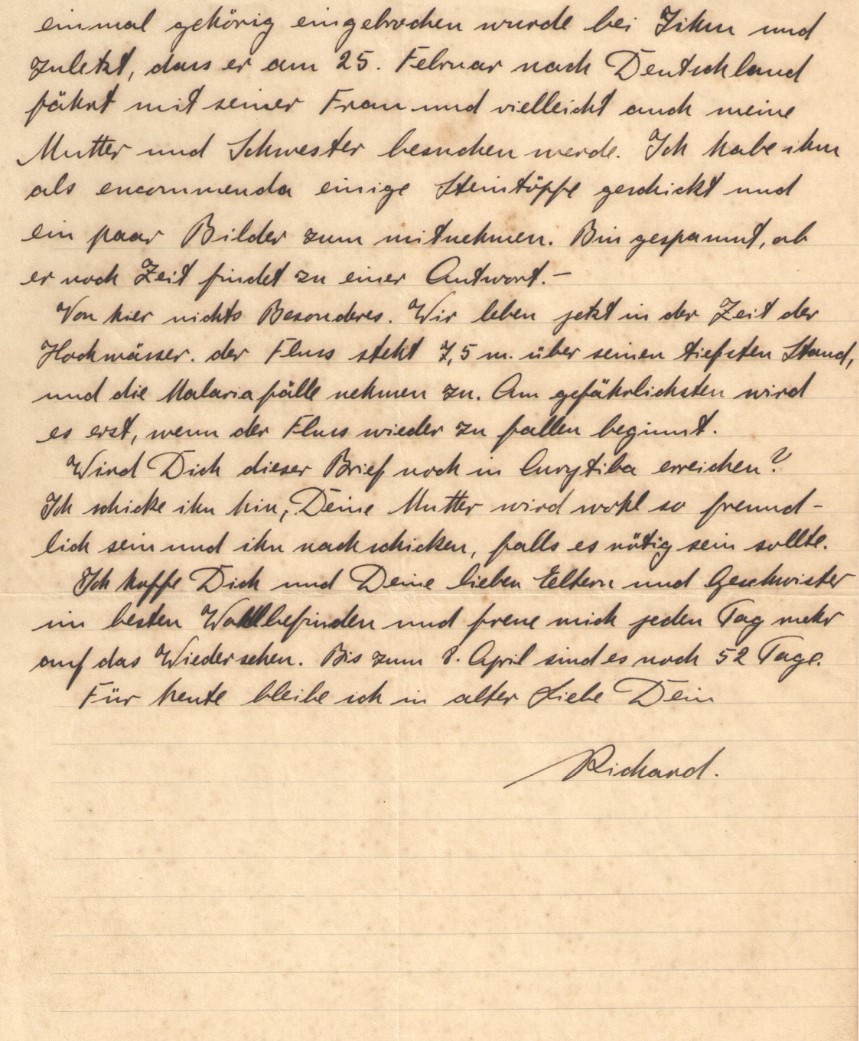 einmal gehörig eingebrochen wurde bei Ihm und
zuletzt, dass er am 25. Februar nach Deutschland
fährt mit seiner Frau und vielleicht auch meine
Mutter und Schwester besuchen werde. Ich habe ihm
als encommenda einige Steintöpfe geschickt und
ein paar Bilder zum mitnehmen. Bin gespannt, ob
er noch Zeit findet zu einer Antwort.—
Von hier nichts Besonderes. Wir leben jetzt in der Zeit der
Hochwässer. der Fluss steht 7,5 m. über seinen tiefsten Stand,
und die Malariafälle nehmen zu. Am gefährlichsten wird
es erst, wenn der Fluss wieder zu fallen beginnt.
Wird Dich dieser Brief noch in Curytiba erreichen?
Ich schicke ihn hin, Deine Mutter wird wohl so freund-
lich sein und ihn nachschicken, falls es nötig sein sollte.
Ich hoffe Dich und Deine lieben Eltern und Geschwister
im besten Wohlbefinden und freue mich jeden Tag mehr
auf das Wiedersehen. Bis zum 8. April sind es noch 52 Tage.
Für heute bleibe ich in alter Liebe Dein
Richard.